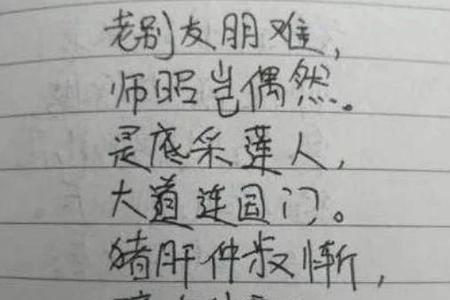 老别友朋难，
师昭岂偶然。
是底采莲人，
大道连国门。
猪肝仲叔惭，